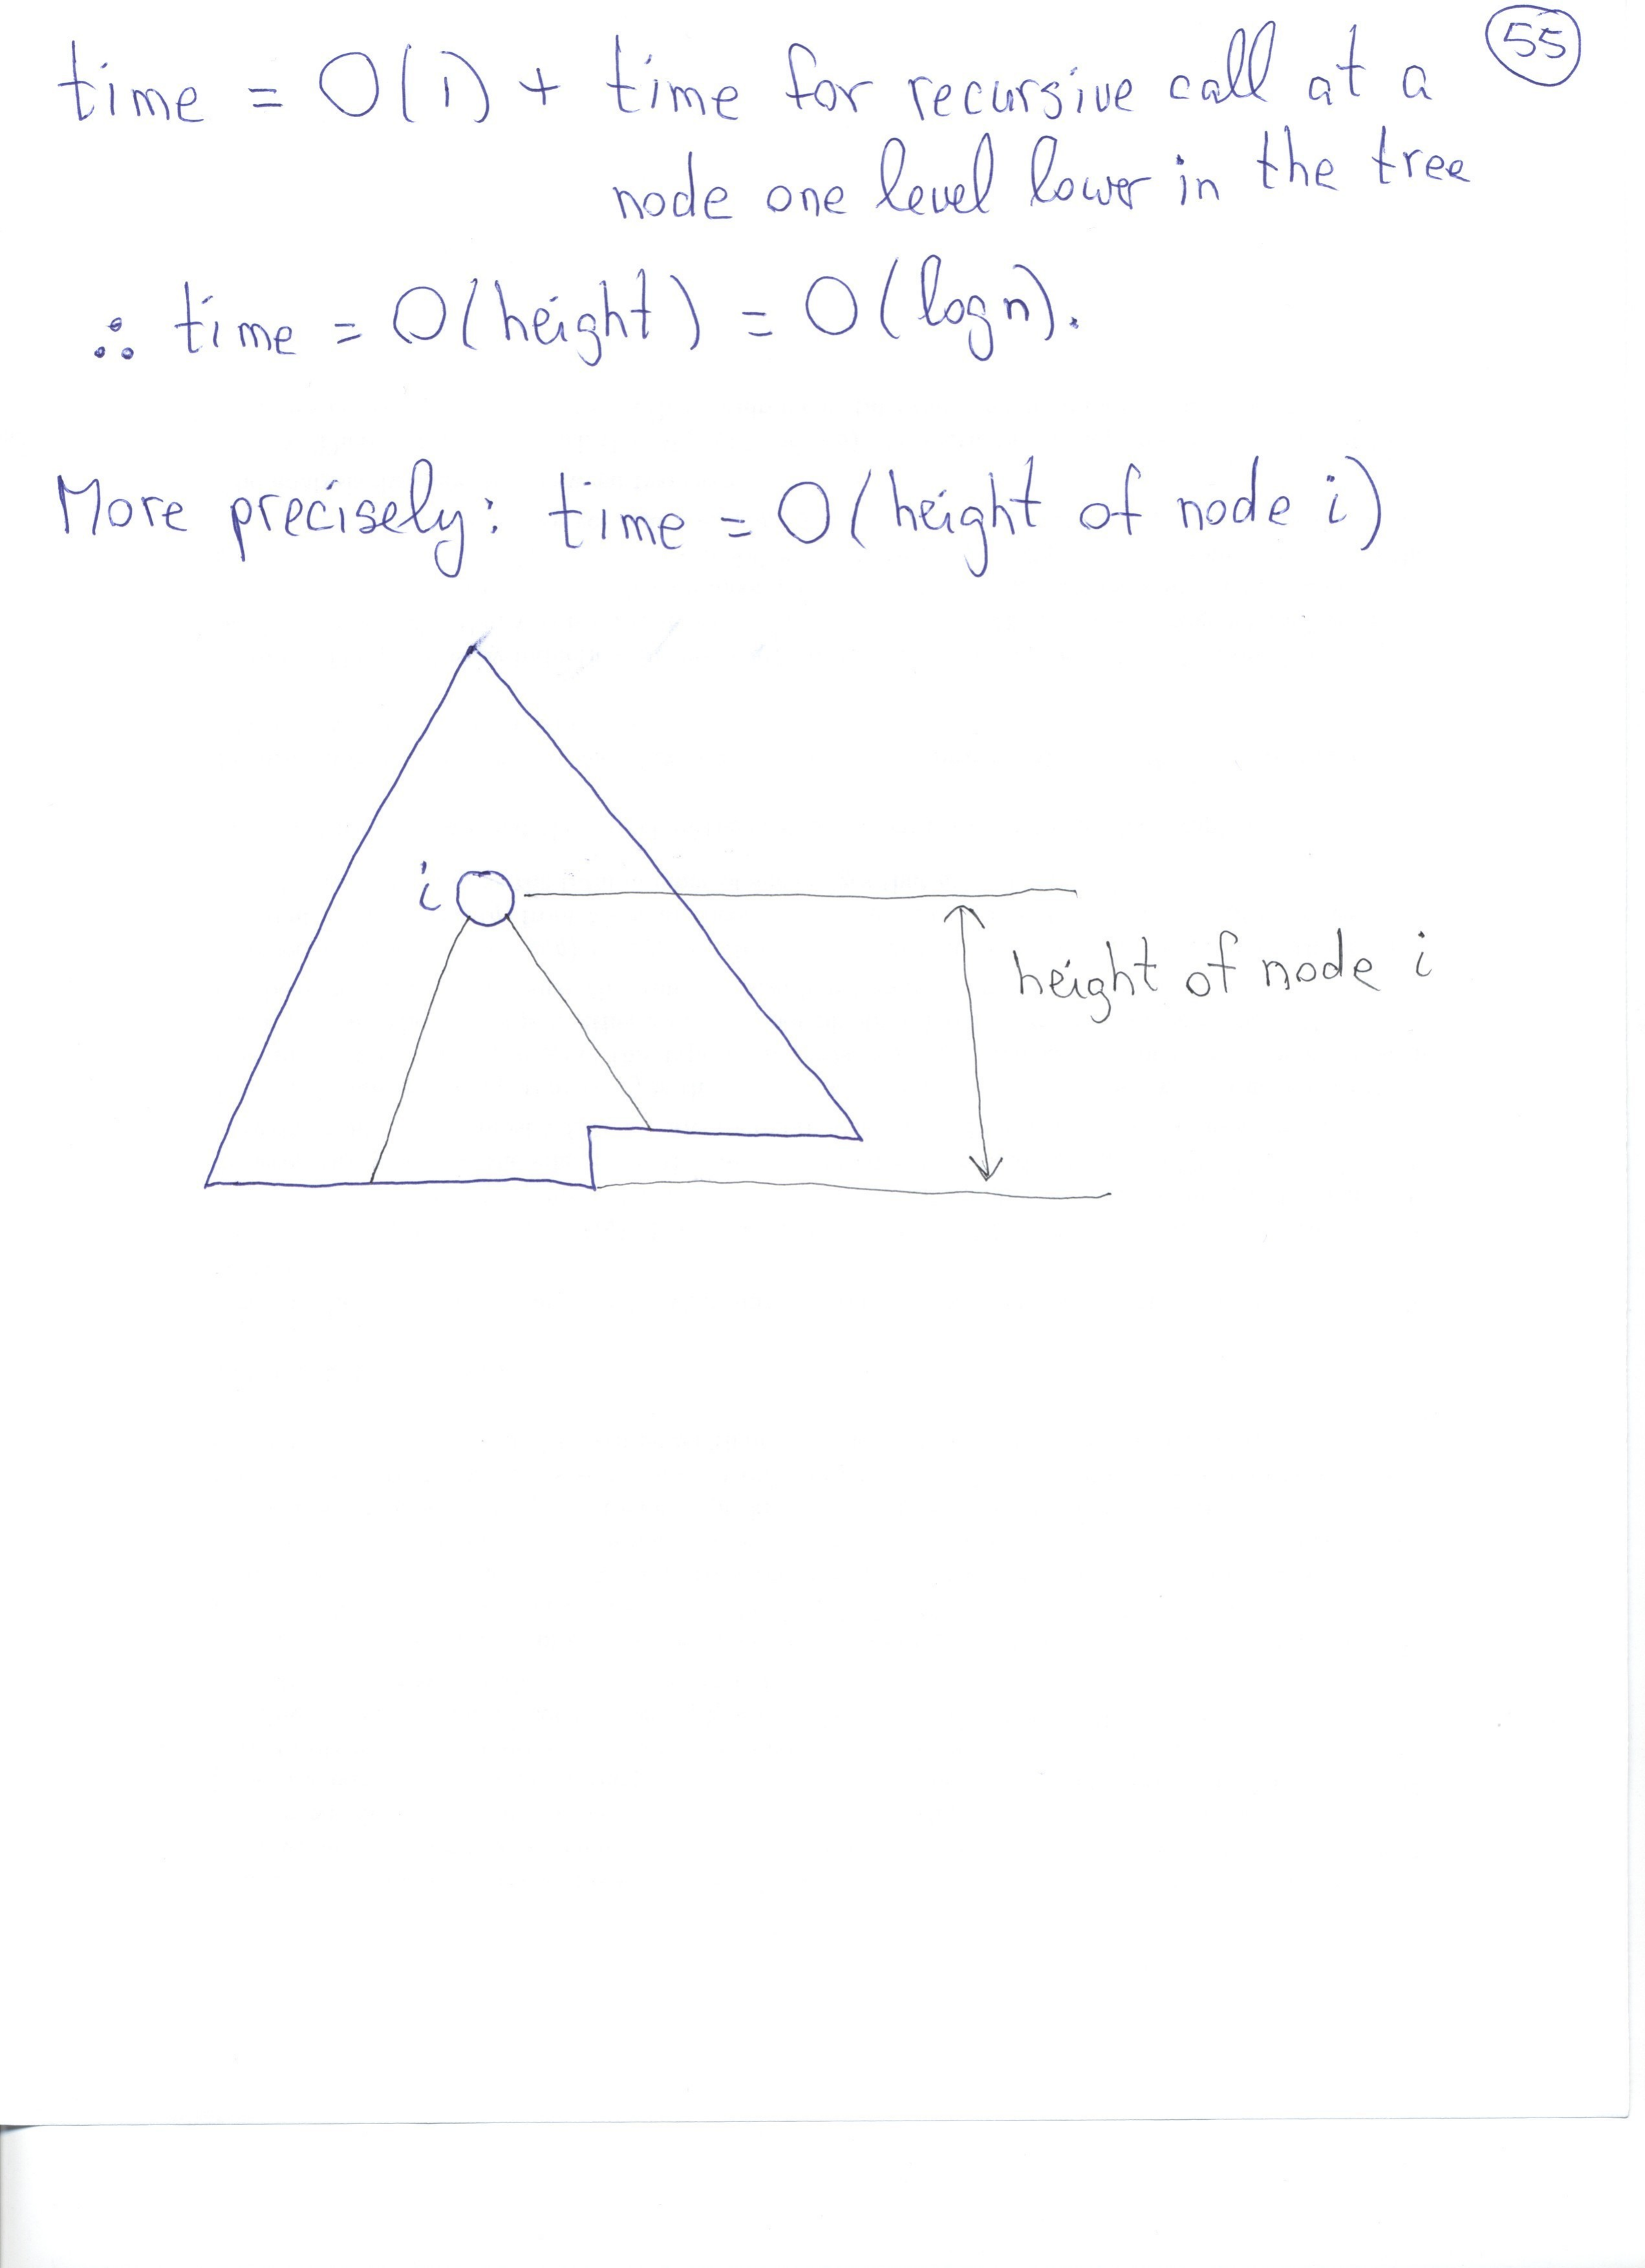 55
time = O(1) + time for recursive call at a
node one level lower in the tree
∴ time = O(height) = O(log n).
More precisely: time = O(height of node i)
i
height of node i